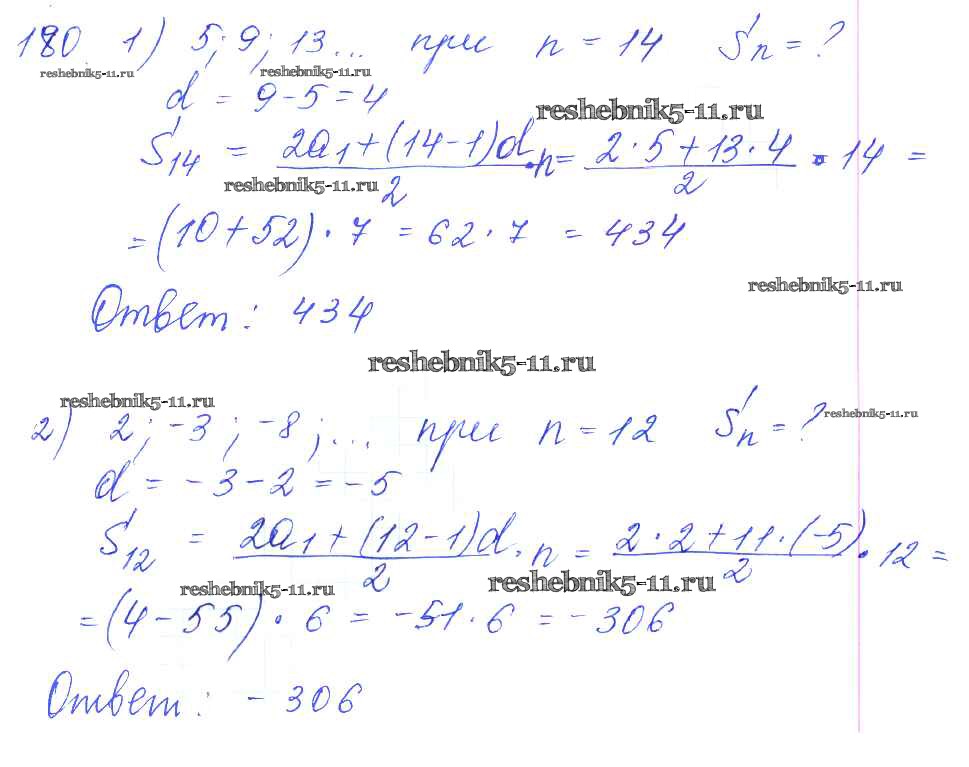 180 1) 5; 9; 13... при n = 14 Sn = ?
reshebnik5-11.ru reshebnik5-11.ru
d = 9 - 5 = 4
reshebnik5-11.ru
S14 = (2a1 + (14 - 1)d)/2 · n = (2 · 5 + 13 · 4)/2 · 14 =
reshebnik5-11.ru
= (10 + 52) · 7 = 62 · 7 = 434
reshebnik5-11.ru
Ответ: 434
reshebnik5-11.ru
reshebnik5-11.ru reshebnik5-11.ru
2) 2; -3; -8; ... при n = 12 Sn = ?
d = -3 - 2 = -5
S12 = (2a1 + (12 - 1)d)/2 · n = (2 · 2 + 11 · (-5))/2 · 12 =
reshebnik5-11.ru reshebnik5-11.ru
= (4 - 55) · 6 = -51 · 6 = -306
Ответ: -306